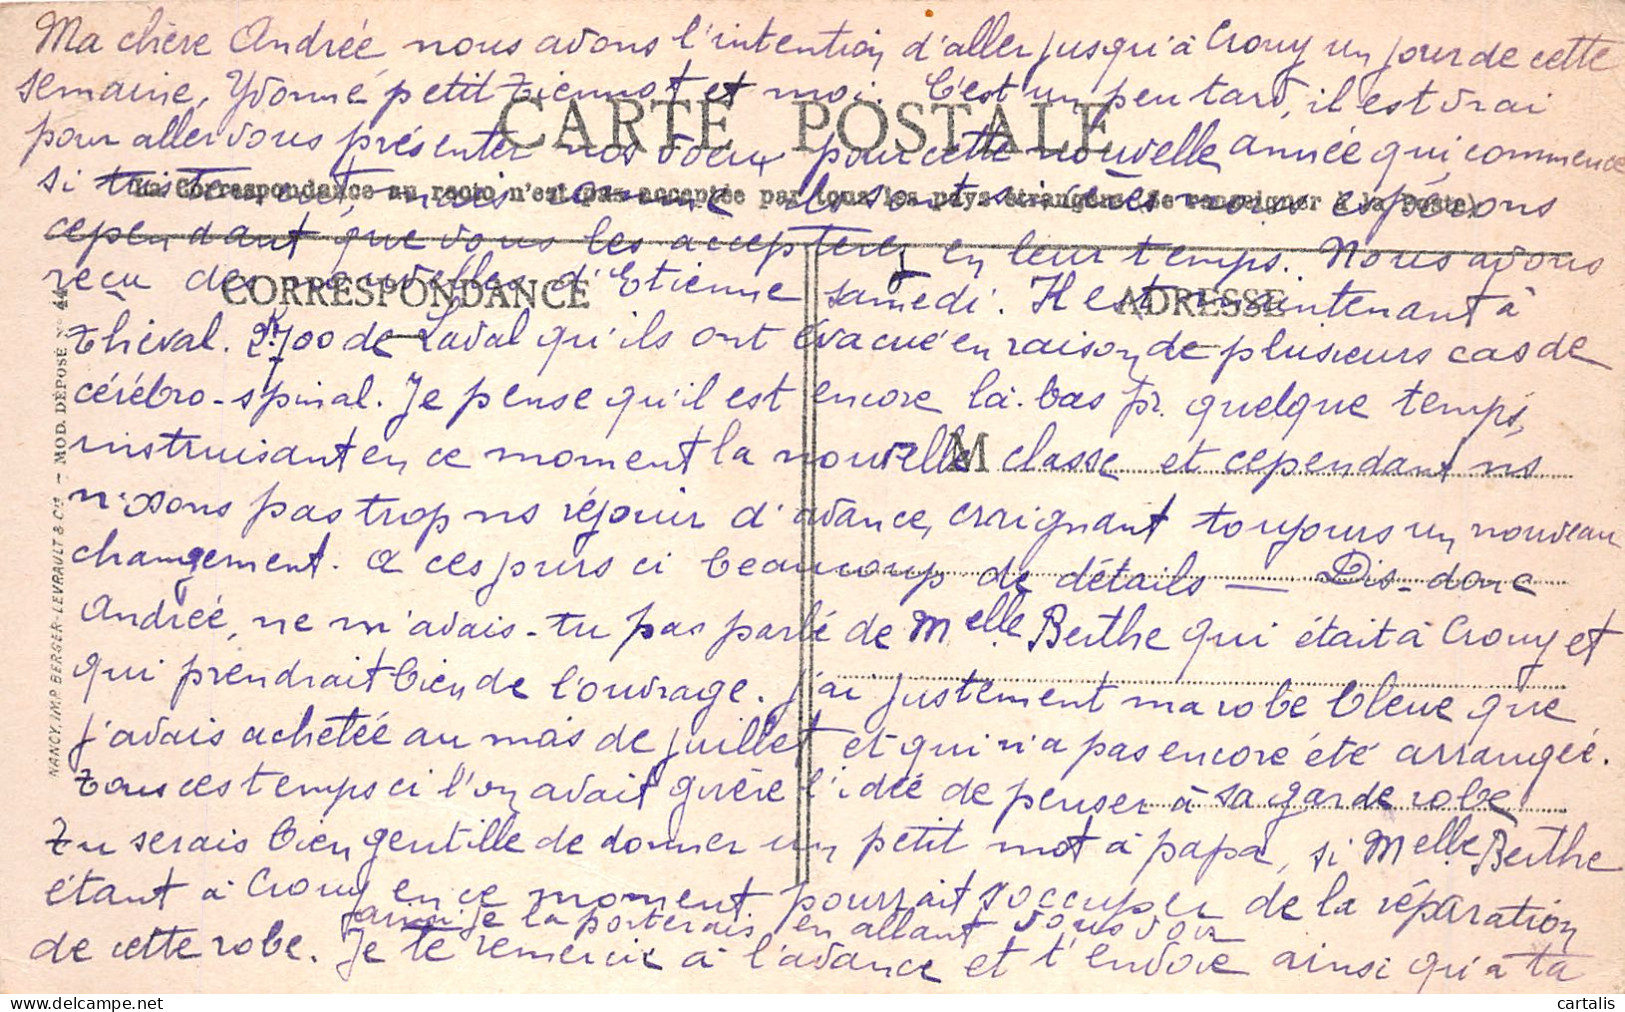 Ma chère Andrée nous avons l'intention d'aller jusqu'à Crouy un jour de cette
semaine, Yvonne petit Etiennot et moi. C'est un peu tard, il est vrai
CARTE POSTALE
pour aller vous présenter nos voeux pour cette nouvelle année qui commence
La Correspondance au recto n'est pas acceptée par tous les pays étrangers (Se renseigner à la Poste)
si tristement, mais comme ils sont sincères nous espérons
cependant que vous les accepterez en leur temps. Nous avons
reçu des nouvelles d'Etienne samedi. Il est maintenant à
CORRESPONDANCE
ADRESSE
Théval. 2k,700 de Laval qu'ils ont évacué en raison de plusieurs cas de
cérébro-spinal. Je pense qu'il est encore là-bas pr. quelque temps,
instruisant en ce moment la nouvelle classe et cependant ns
M
n'osons pas trop ns réjouir d'avance, craignant toujours un nouveau
changement. A ces jours ci beaucoup de détails — Dis-donc
Andrée, ne m'avais-tu pas parlé de Melle Berthe qui était à Crouy et
qui prendrait bien de l'ouvrage. J'ai justement ma robe bleue que
j'avais achetée au mois de juillet et qui n'a pas encore été arrangée.
Tous ces temps ci l'on avait guère l'idée de penser à sa garde robe
Tu serais bien gentille de donner un petit mot à papa, si Melle Berthe
étant à Crouy en ce moment pourrait s'occuper de la réparation
ainsi je la porterais en allant vous voir
de cette robe. Je te remercie à l'avance et t'envoie ainsi qu'à ta
NANCY, IMP. BERGER-LEVRAULT & Cie — MOD. DÉPOSÉ N° 44
cartalis